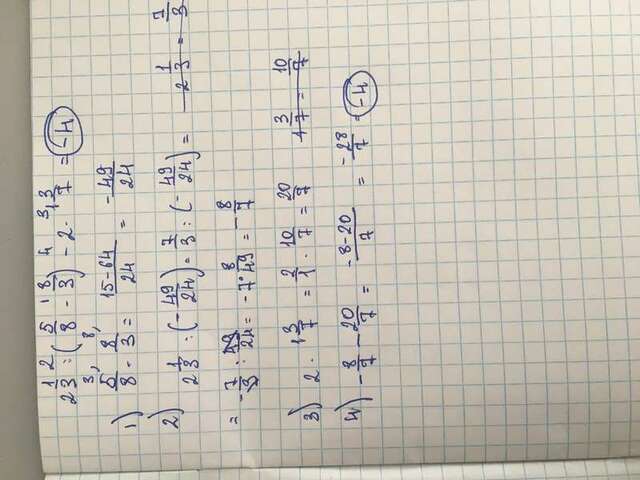 2 1/3 : (5/8 - 8/3) - 2 · 1 3/7 = -4
1) 5/8 - 8/3 = (15-64)/24 = -49/24
2) 2 1/3 : (-49/24) = 7/3 : (-49/24) = 2 1/3 = 7/3
= -7/3 : 49/24 = -7 · 8/49 = -8/7
3) 2 · 1 3/7 = 2/1 · 10/7 = 20/7 1 3/7 = 10/7
4) -8/7 - 20/7 = (-8-20)/7 = -28/7 = -4